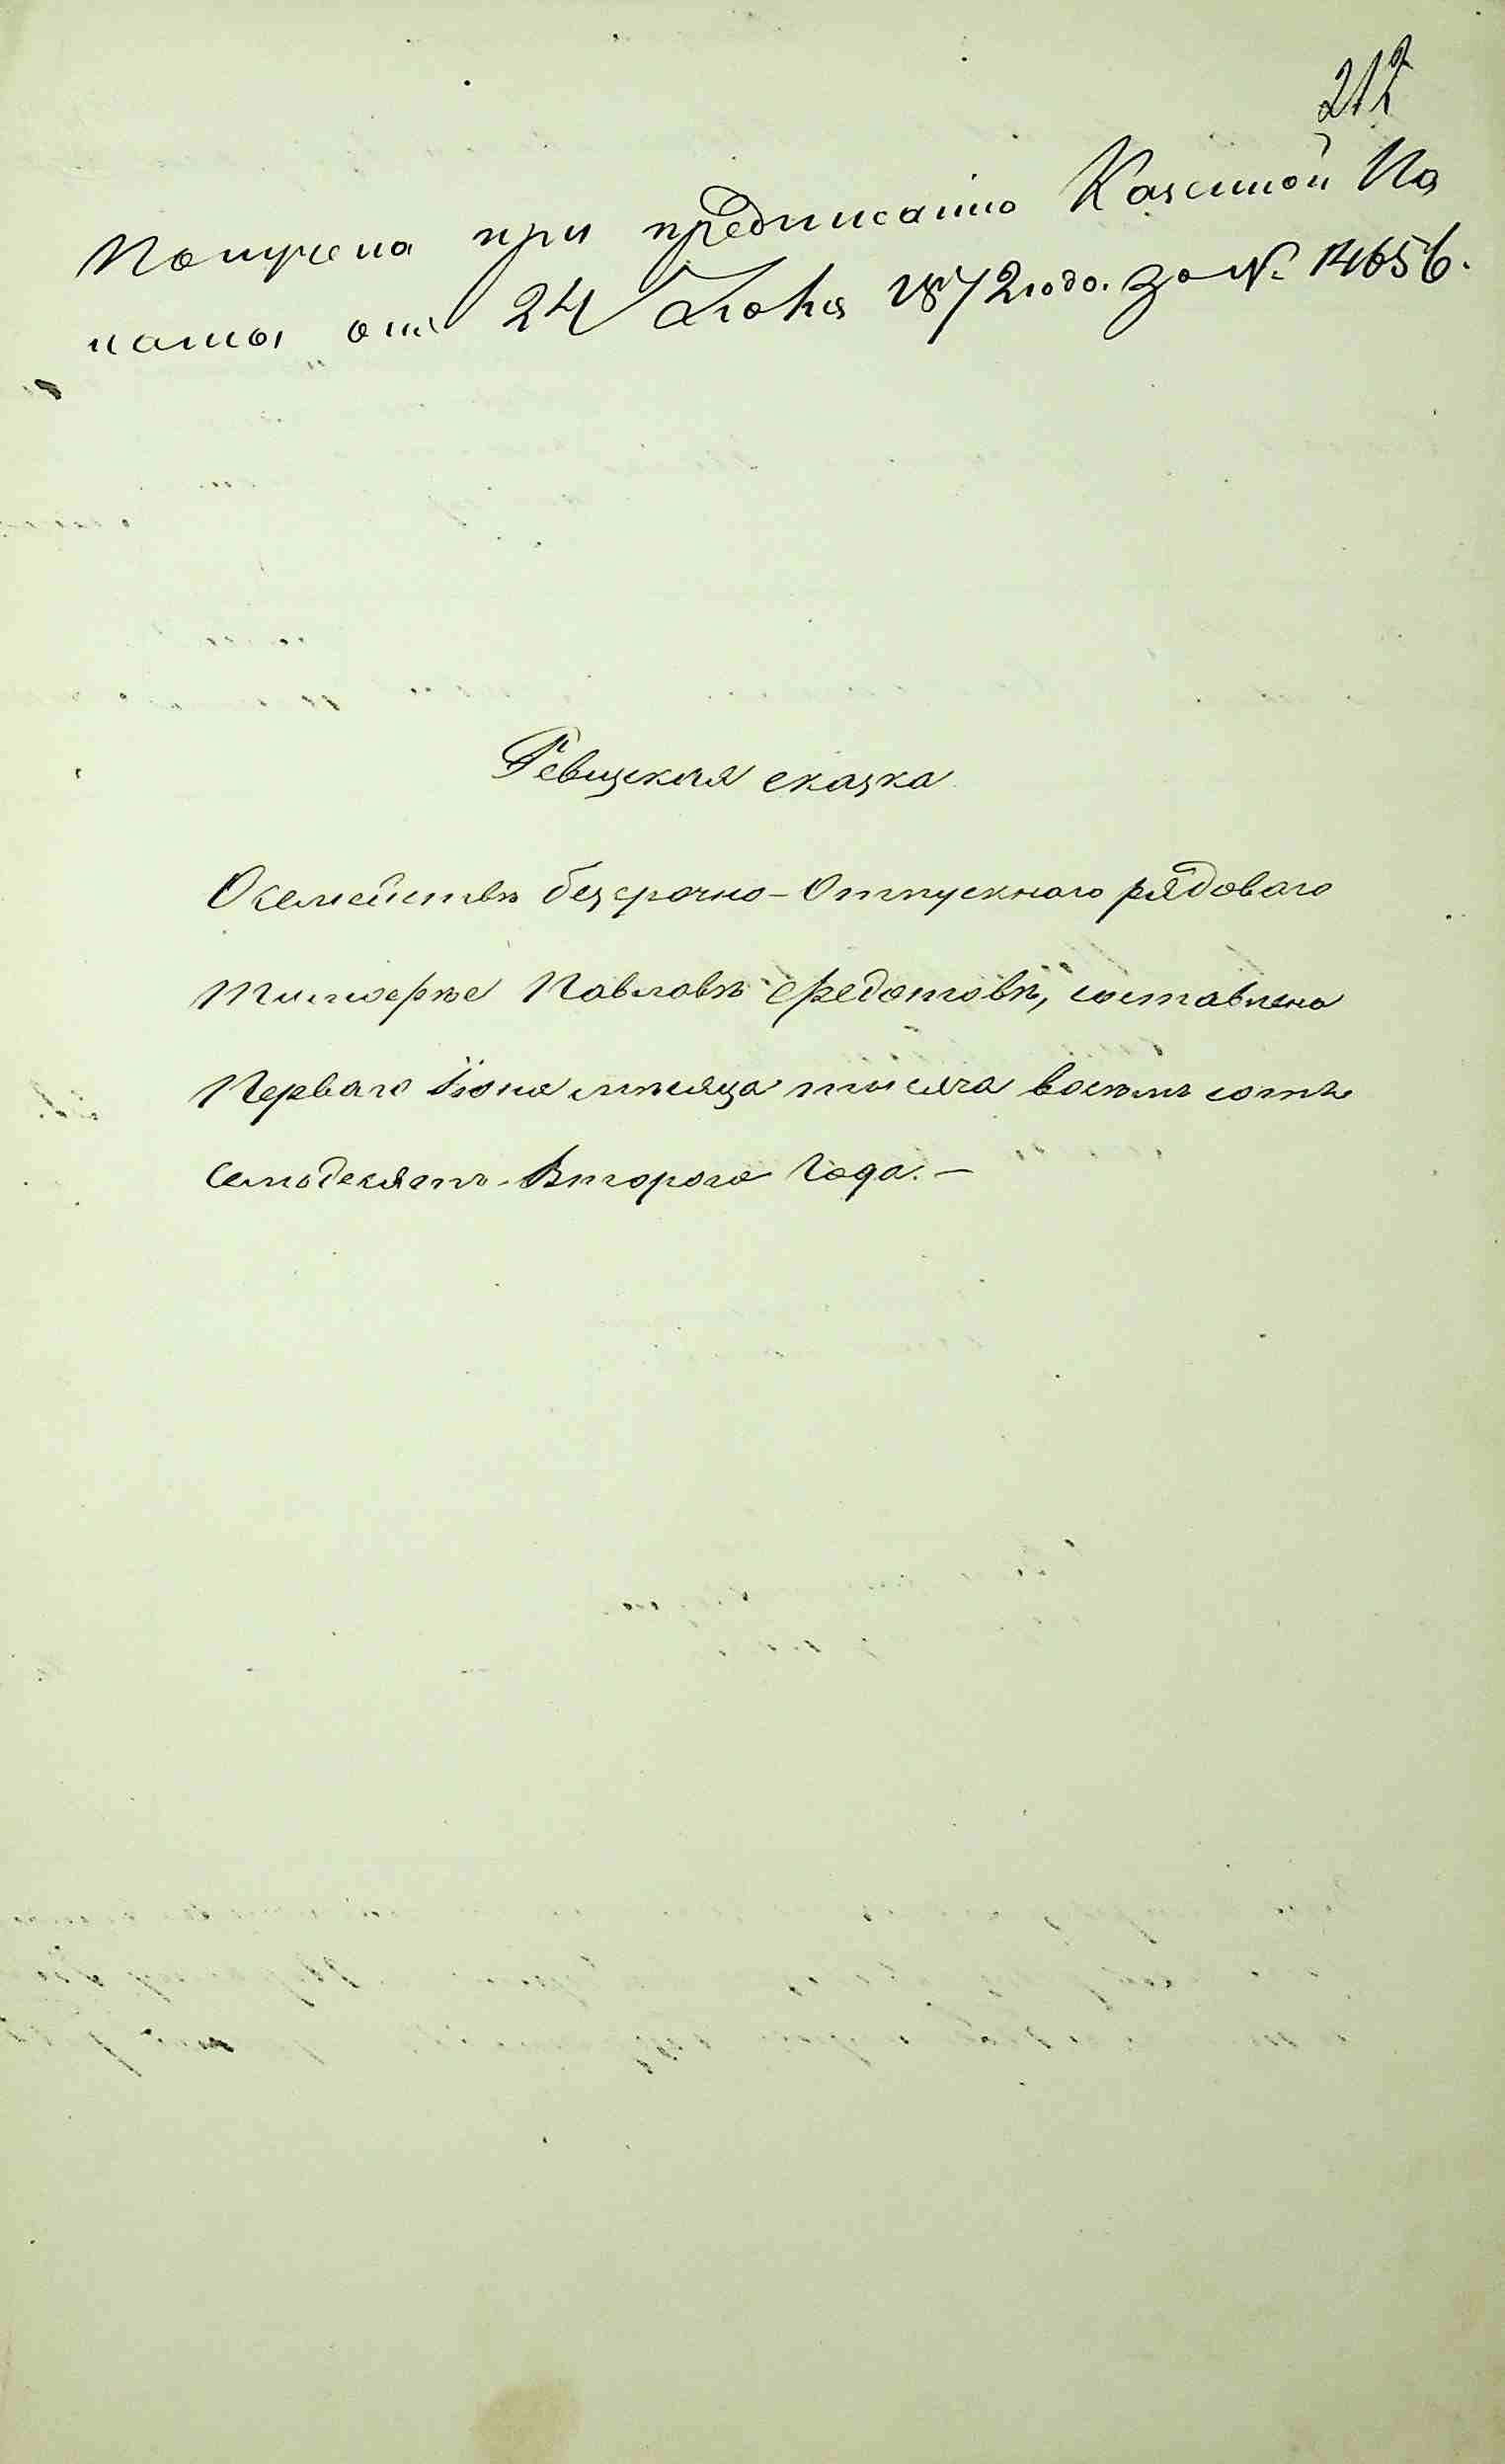 212
Получена при предписанію Казенной Па
латы от 24 Июня 1872 годо. за №. 14656.
Ревизкая сказка
О семействѣ безсрочно-Отпускнаго рядоваго
Тимоѳѣе Павловѣ Ѳедотовѣ, составлена
Перваго Іюня мѣсяца тысяча восѣмь сотъ
Семьдесятъ-Второго Года.—